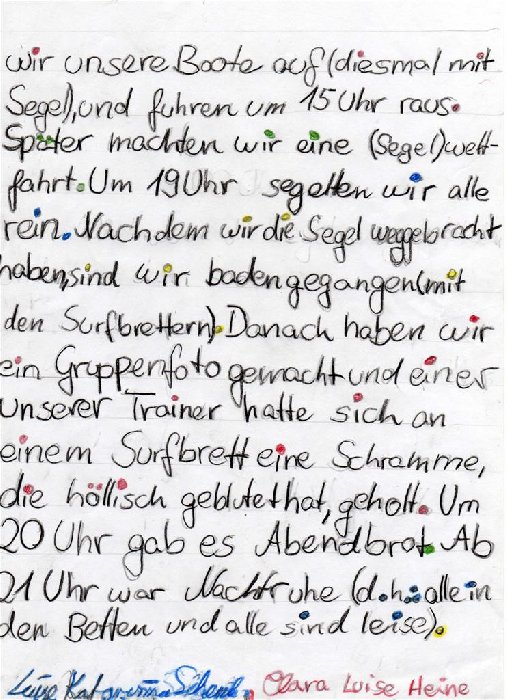 wir unsere Boote auf (diesmal mit
Segel), und fuhren um 15 Uhr raus.
Später machten wir eine (Segel)wett-
fahrt. Um 19 Uhr segelten wir alle
rein. Nachdem wir die Segel weggebracht
haben, sind wir baden gegangen (mit
den Surfbrettern). Danach haben wir
ein Gruppenfoto gemacht und einer
unserer Trainer hatte sich an
einem Surfbrett eine Schramme,
die höllisch geblutet hat, geholt. Um
20 Uhr gab es Abendbrot. Ab
21 Uhr war Nachtruhe (d.h.: alle in
den Betten und alle sind leise).
Luise Katharina Clara Luise Heine